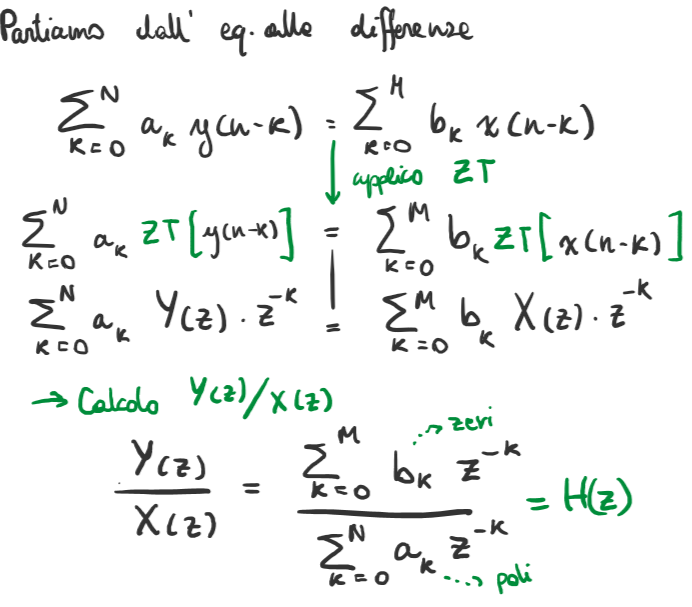 Partiamo dall' eq. alle differenze
∑_{k=0}^{N} a_k y(n-k) = ∑_{k=0}^{M} b_k x(n-k)
↓ applico ZT
∑_{k=0}^{N} a_k ZT[y(n-k)] = ∑_{k=0}^{M} b_k ZT[x(n-k)]
∑_{k=0}^{N} a_k Y(z) · z^{-k} = ∑_{k=0}^{M} b_k X(z) · z^{-k}
→ Calcolo Y(z)/X(z)
Y(z)/X(z) = (∑_{k=0}^{M} b_k z^{-k}) / (∑_{k=0}^{N} a_k z^{-k}) = H(z)
zeri
poli